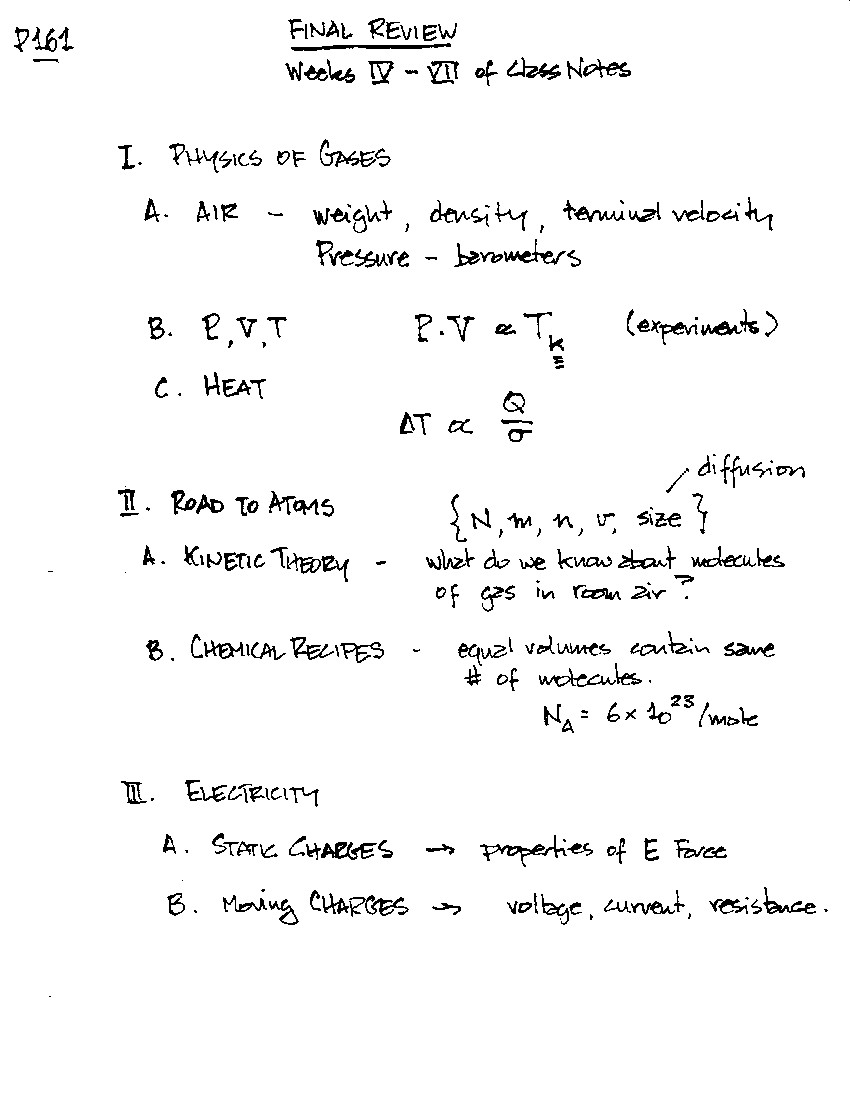 P161
FINAL REVIEW
Weeks IV - VII of Class Notes
I. PHYSICS OF GASES
A. AIR - weight, density, terminal velocity
Pressure - barometers
B. P,V,T P·V ∝ T_K (experiments)
C. HEAT
ΔT ∝ Q/σ
diffusion
II. ROAD TO ATOMS {N, m, n, v, size}
A. KINETIC THEORY - what do we know about molecules
of gas in room air?
B. CHEMICAL RECIPES - equal volumes contain same
# of molecules.
N_A = 6 × 10^23 /mole
III. ELECTRICITY
A. STATIC CHARGES → properties of E Force
B. Moving CHARGES → voltage, current, resistance.